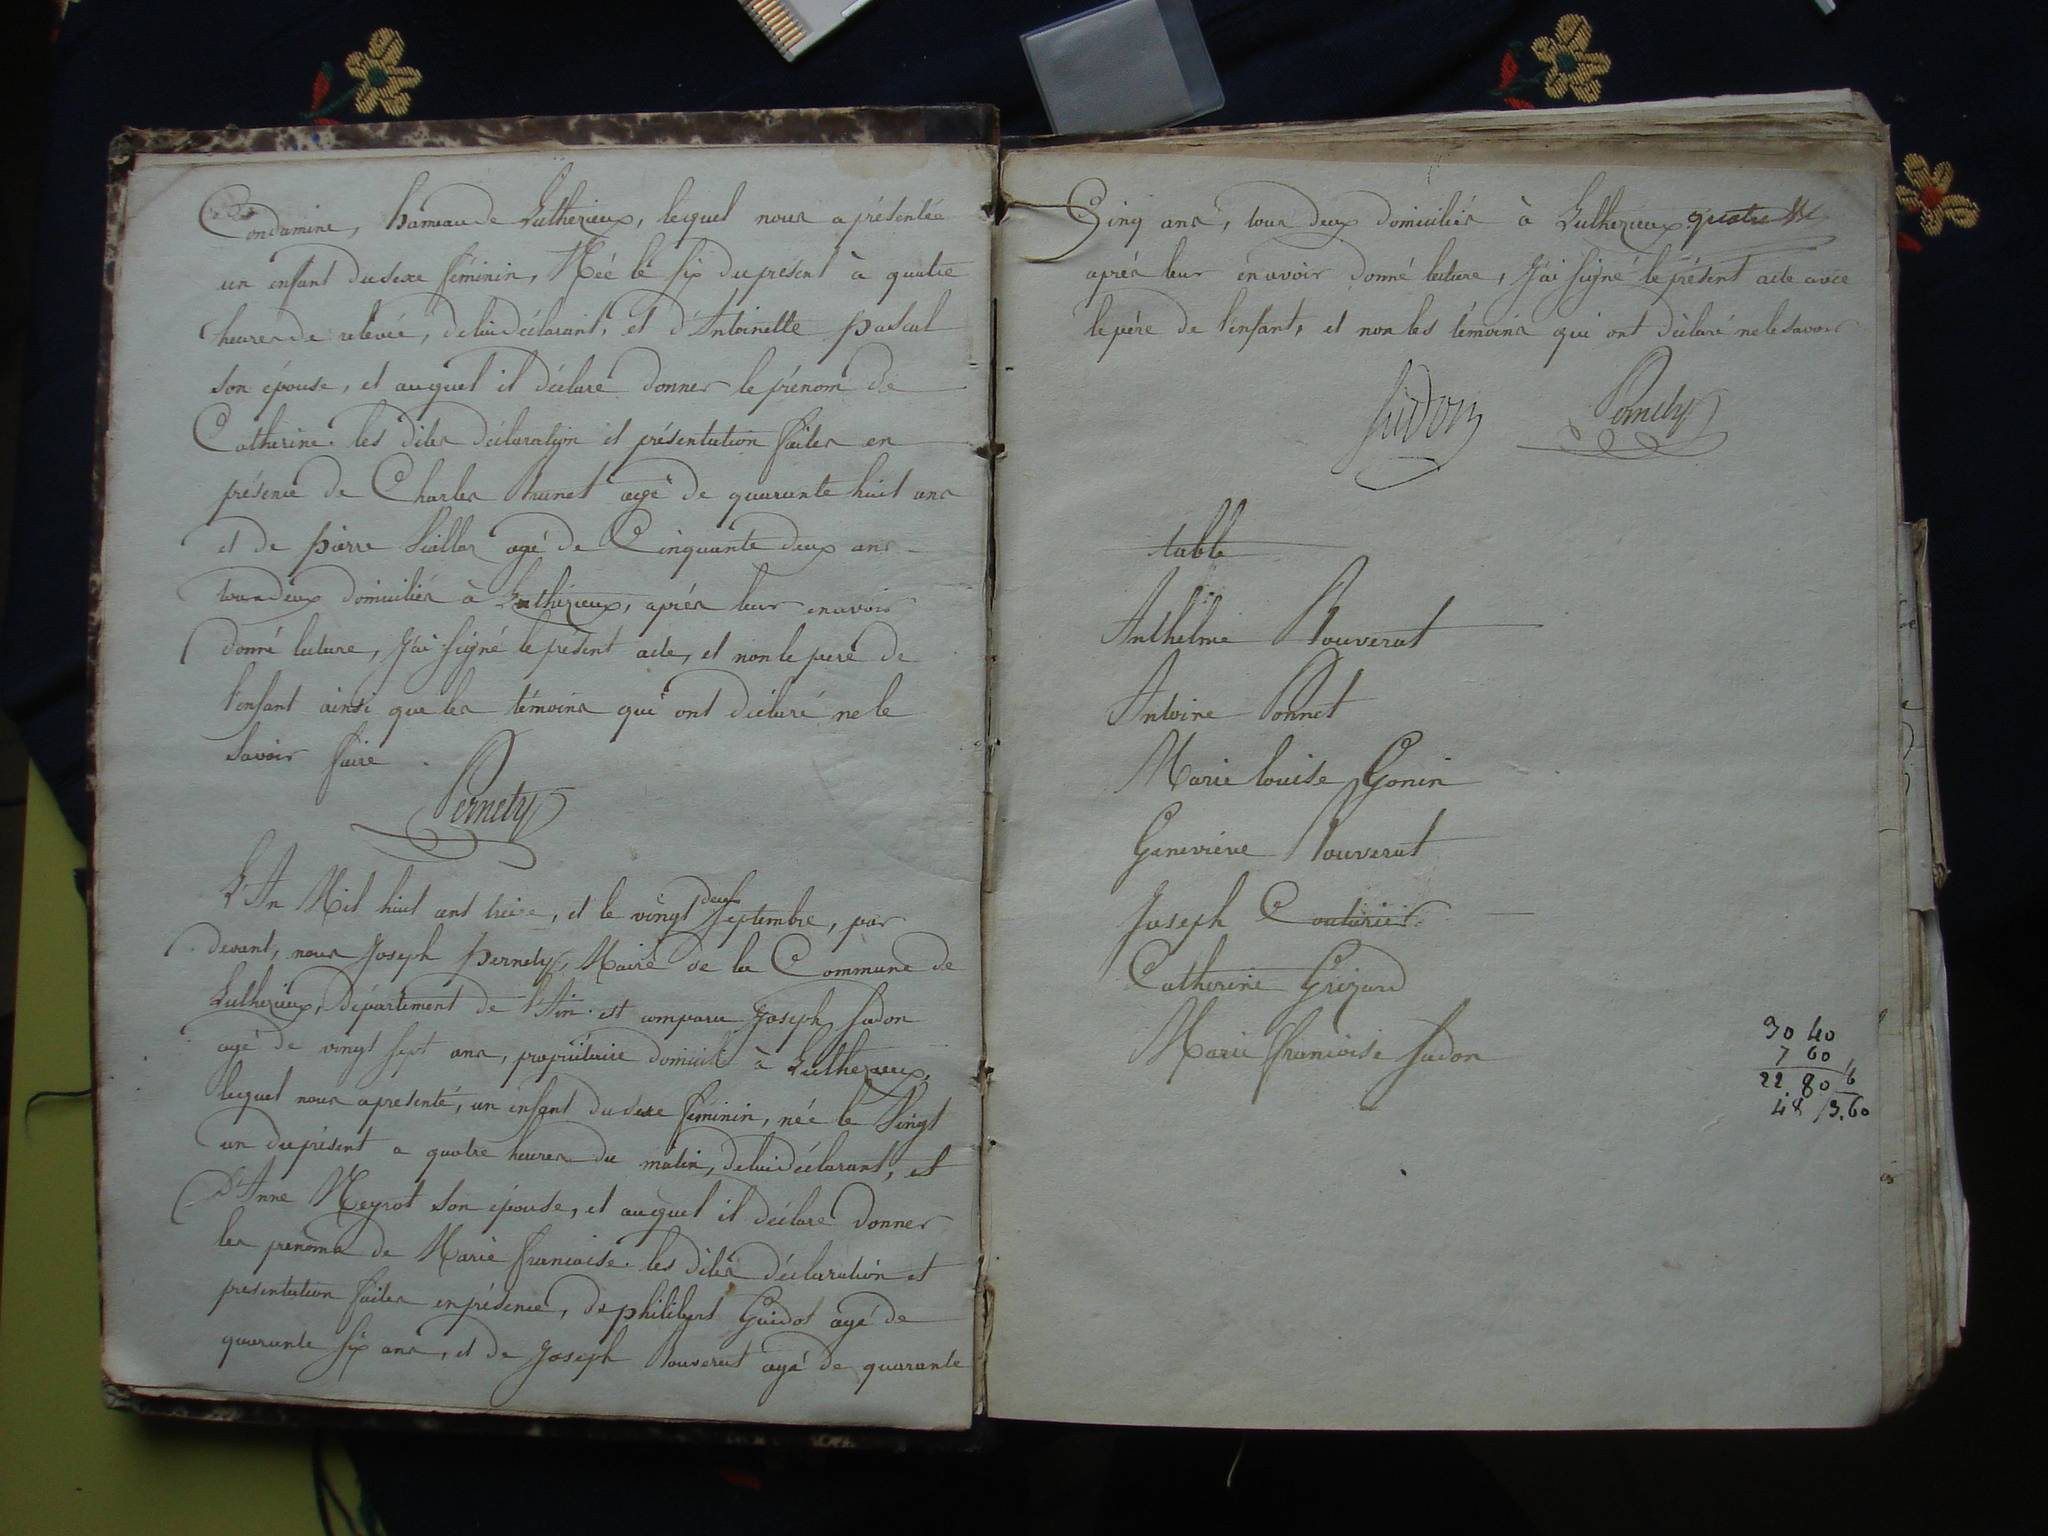 Condamine, hameau de Luthezieux, lequel nous a présentée
un enfant du sexe féminin, Née le six du présent à quatre
heures de relevée, de lui déclarant, et d'Antoinette pascal
son épouse, et auquel il déclare donner le prénom de
Catherine. les dites déclaration et présentation faites en
présence de Charles Brunet agé de quarante huit ans
et de pierre agé de Cinquante deux ans
tous deux domiciliés à Luthezieux, après leur en avoir
donné lecture, J'ai signé le présent acte, et non le pere de
l'enfant ainsi que les témoins qui ont déclaré ne le
savoir faire.
Pernety
L'An Mil huit cent treize, et le vingt deux septembre, par
devant, nous Joseph pernety, Maire de la Commune de
Luthezieux, département de l'Ain. est comparu Joseph Sudon
agé de vingt sept ans, propriétaire domicilié à Luthezieux,
lequel nous a presenté, un enfant du sexe féminin, née le Vingt
un du présent a quatre heures du matin, de lui déclarant, et
d'Anne Meyrot son épouse, et auquel il déclare donner
les prenoms de Marie francoise. les dites déclaration et
presentation faites en présence, de philibert Guidot agé de
quarante six ans, et de Joseph Bouverat agé de quarante
Cinq ans, tous deux domiciliés à Luthezieux quatre
après leur en avoir donné lecture, J'ai signé le présent acte avec
le père de l'enfant, et non les témoins qui ont déclaré ne le savoir
Sudon Pernety
table
Anthelme Bouverat
Antoine Bonnet
Marie louise Gonin
Geneviève Bouverat
Joseph Couturier
Catherine Grézard
Marie francoise Sudon
30 40
7 60
22 80 6
48 3,60